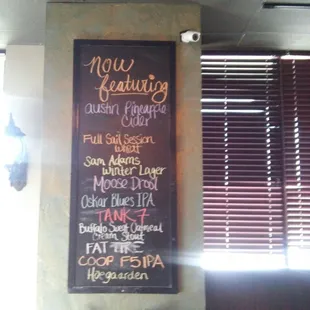 now
featuring
austin Pineapple
Cider
Full Sail Session
Wheat
Sam Adams
winter Lager
Moose Drool
Oskar Blues IPA
TANK 7
Buffalo Sweat Oatmeal
Cream Stout
FAT TIRE
COOP F5 IPA
Hoegaarden